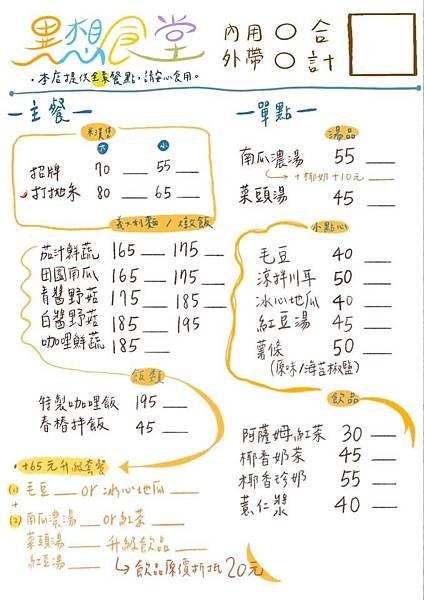 異想食堂
內用○ 合
外帶○ 計
·本店提供全素餐點，請安心食用。
一主餐一
米漢堡
大 小
招牌 70 55
打拋朱 80 65
義大利麵/燉飯
茄汁鮮蔬 165 175
田園南瓜 165 175
青醬野菇 175 185
白醬野菇 185 195
咖哩鮮蔬 185
飯類
特製咖哩飯 195
春椿拌飯 45
·+65元升級套餐
(1) 毛豆 or 冰心地瓜
+
(2) 南瓜濃湯 or 紅茶
菜頭湯 升級飲品
紅豆湯 ↳飲品原價折抵20元
一單點一
湯品
南瓜濃湯 55
↳+椰奶+10元
菜頭湯 45
小點心
毛豆 40
涼拌川耳 50
冰心地瓜 40
紅豆湯 45
薯條 50
(原味/海苔椒鹽)
飲品
阿薩姆紅茶 30
椰香奶茶 45
椰香珍奶 55
薏仁漿 40